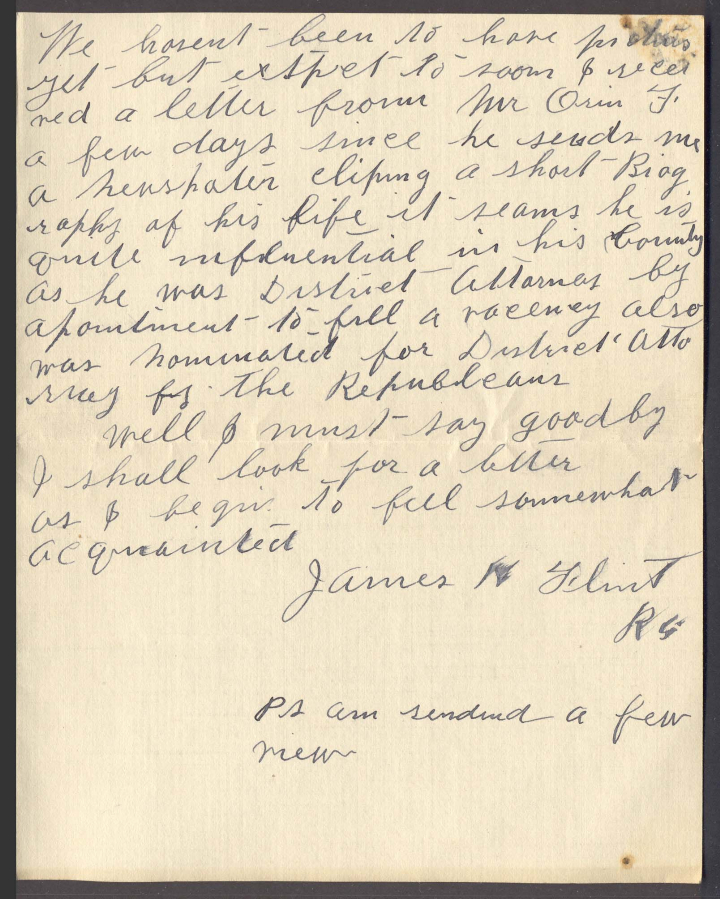 We hasent been to have photos
yet but extpect to soon I recei
ved a letter from Mr Orin F.
a few days since he sends me
a newspater cliping a short Biog
raphy of his life it seams he is
quite influential in his County
as he was District Attornay by
apointiment to fill a vacency also
was nominated for District Atto
rney by the Republicans
well I must say goodby
I shall look for a letter
as I begin to fell somewhat
acquainted
James H Flint
R
Ps am sendind a few
view